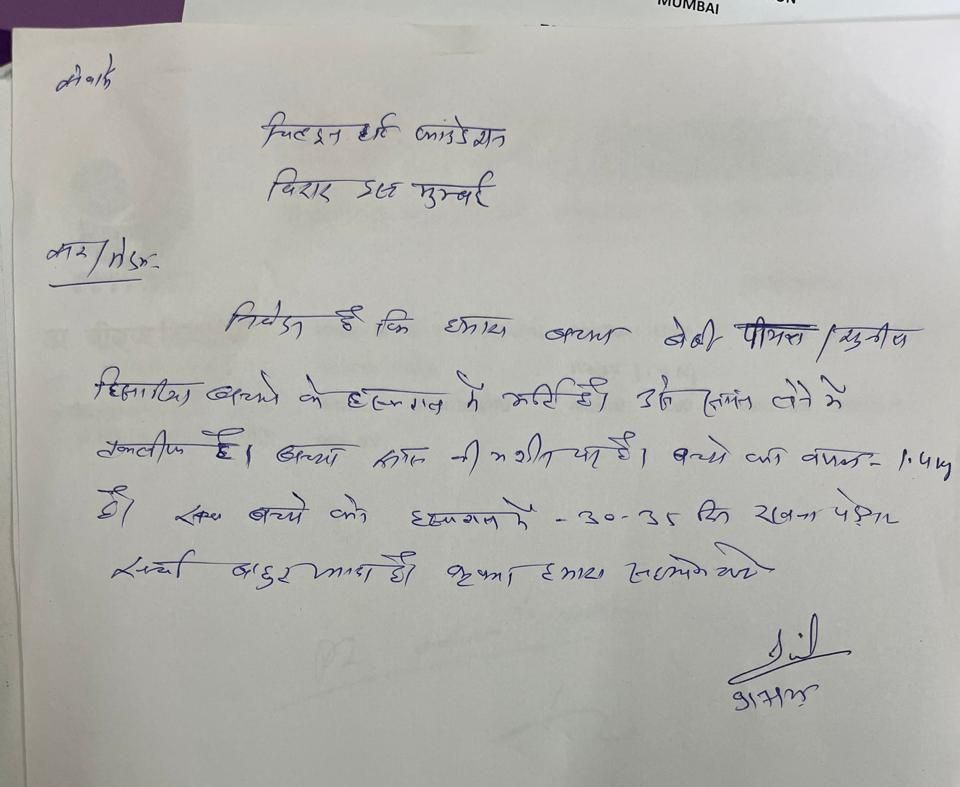 MUMBAI
सेवामें
चिल्ड्रन हार्ट फाउंडेशन
विरार इस्ट मुम्बई
सर/मेडम-
निवेदन है कि हमारा बच्चा बेबी /सुनील
बच्चो के हस्पताल में भर्ति है। उसे सांस लेने में
तकलीफ है। बच्चा सांस की मशीन पर है। बच्चे का वजन - 1.4kg
है। इस बच्चे को हस्पताल में - 30-35 दिन रखना पड़ेगा
खर्चा बहुत ज्यादा है। कृपया हमारा सहयोग करे